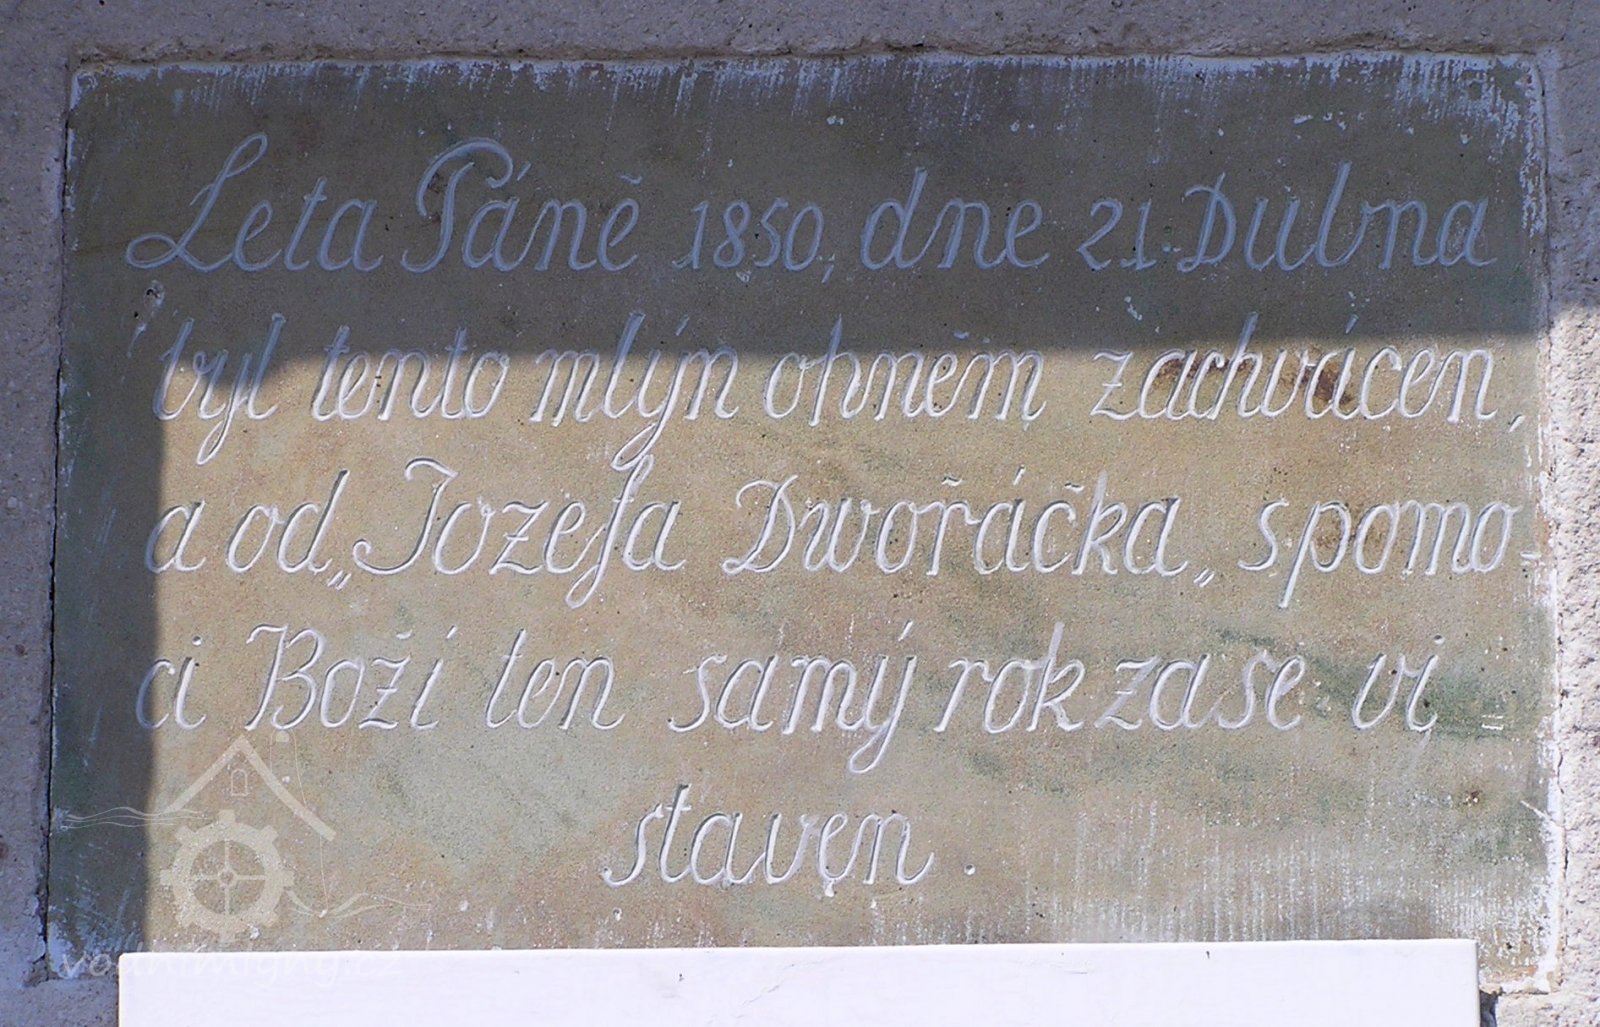 Leta Páně 1850, dne 21. Dubna
byl tento mlýn ohněm zachvácen,
a od „Jozefa Dwořáčka„ s pomo-
ci Boží ten samý rok zase vi=
staven.
vodnimlyny.cz